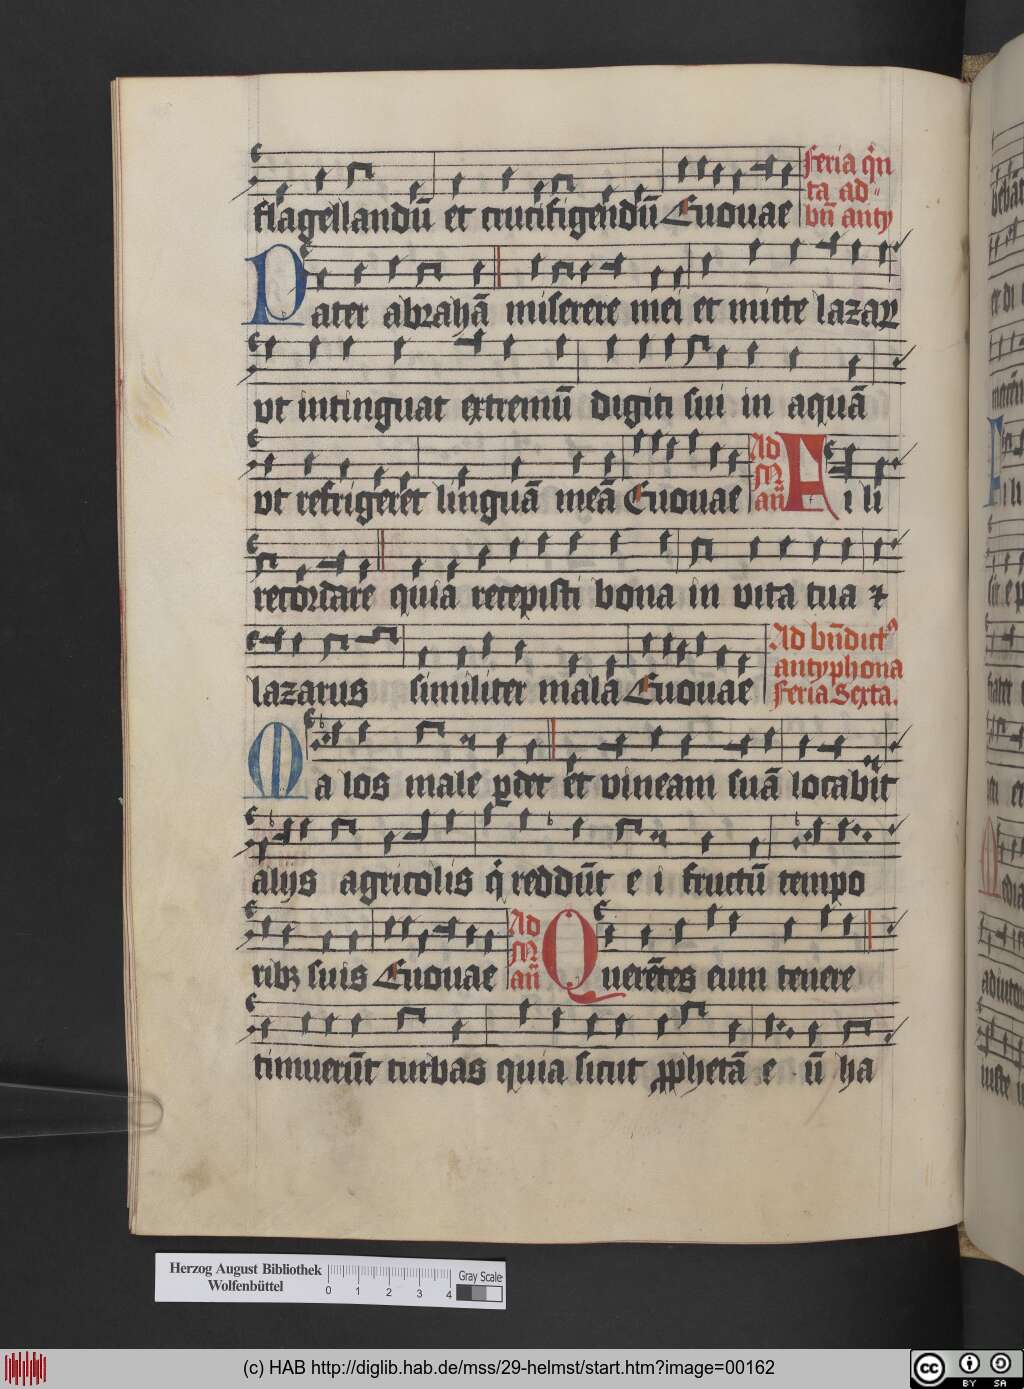 flagellandū et crucifigendū Euouae
feria qͥn
ta ad
bn̄ anty
Pater abrahā miserere mei et mitte lazarꝝ
vt intinguat extremū digiti sui in aquā
vt refrigeret linguā meā Euouae
Ad
M
an̄
Fi li
recordare quia recepisti bona in vita tua ⁊
lazarus similiter mala Euouae
Ad bn̄dictꝰ
antyphona
feria Sexta.
Ma los male ꝑdet et vineam suā locabit
alijs agricolis qͥ reddūt e i fructū tempo
ribꝫ suis Euouae
Ad
M
an̄
Querētes eum tenere
timuerūt turbas quia sicut ꝓphetā e ū ha
Herzog August Bibliothek
Wolfenbüttel
0 1 2 3 4
Gray Scale
(c) HAB http://diglib.hab.de/mss/29-helmst/start.htm?image=00162
cc BY SA